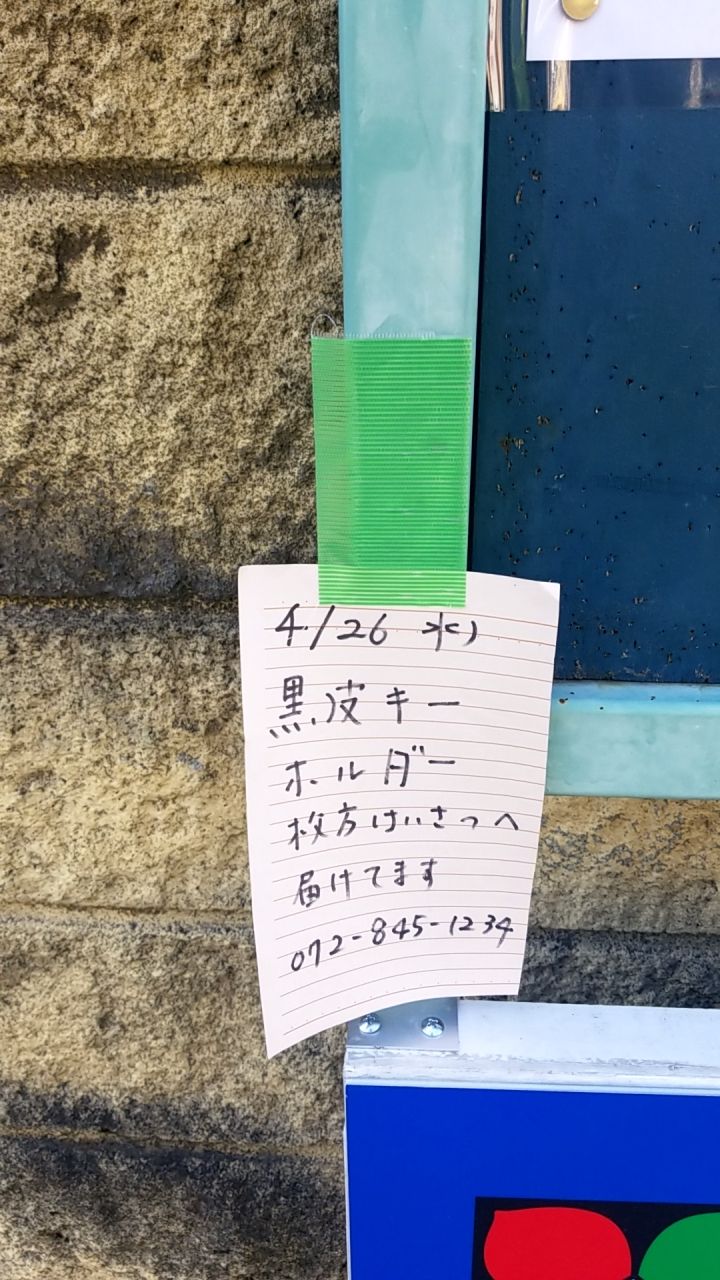 4/26 水)
黒皮キー
ホルダー
枚方けいさつへ
届けてます
072-845-1234